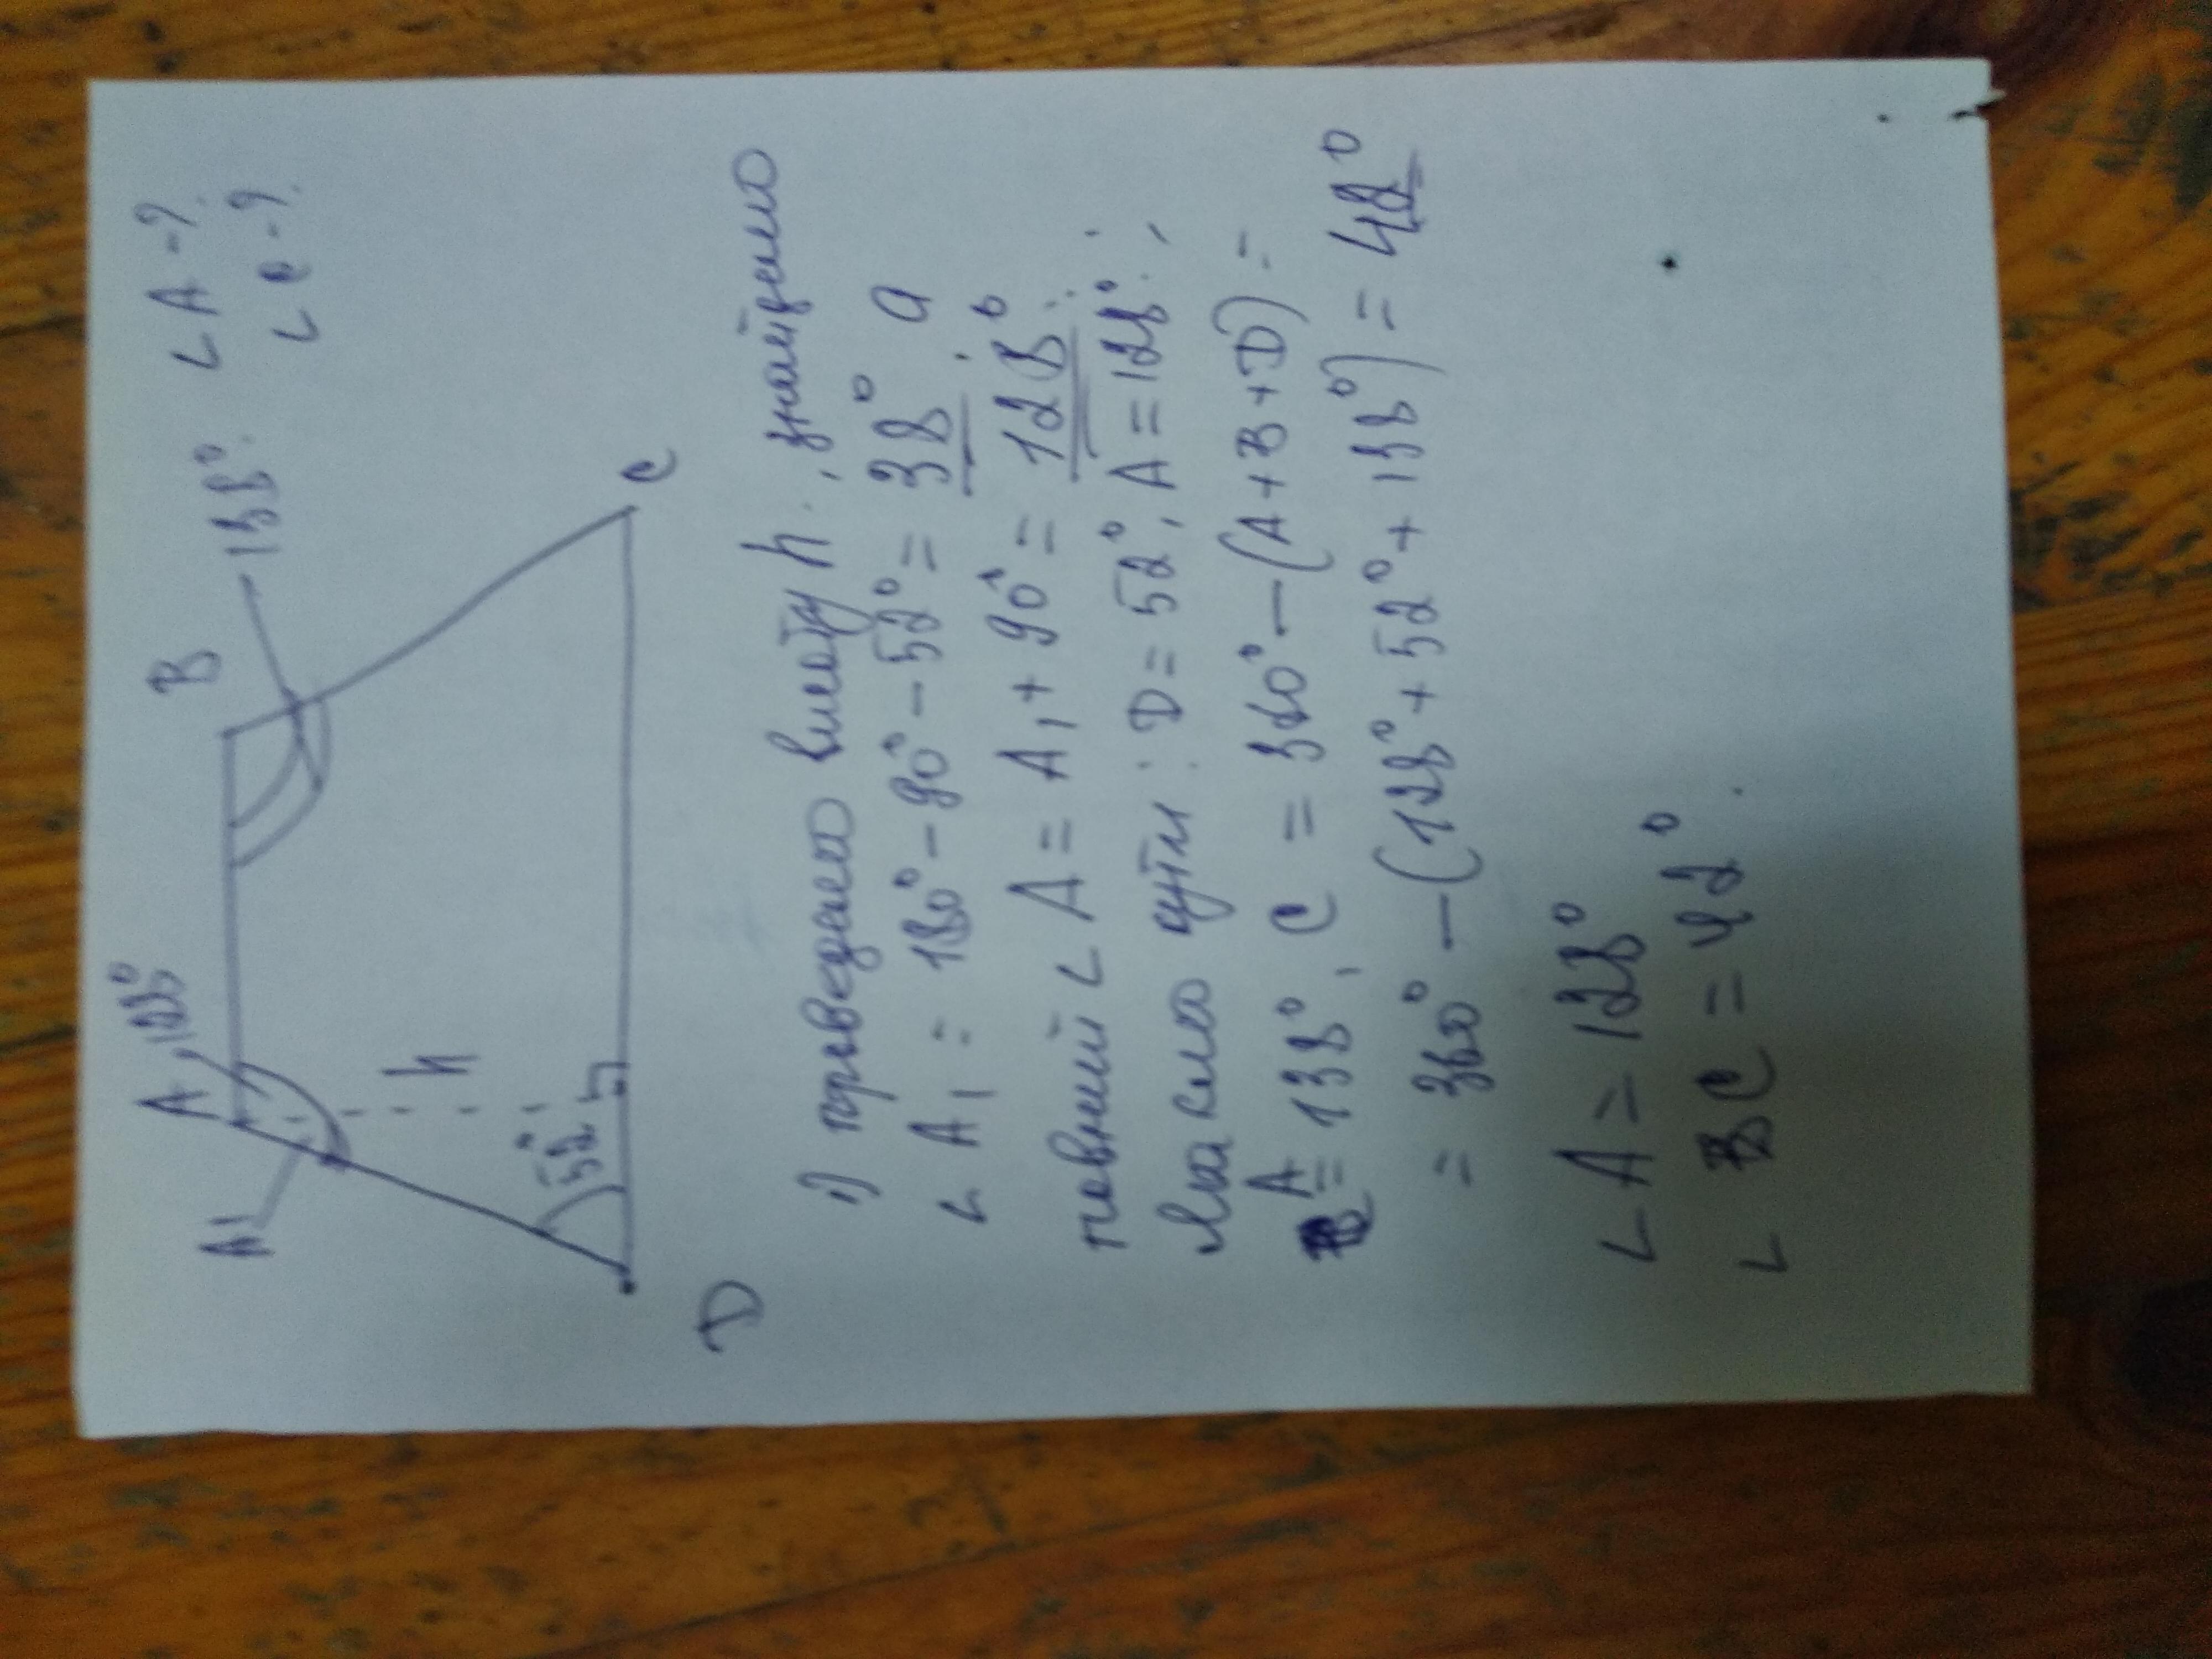 A, 128° B 138° ∠A-?
∠C-?
A1 h
52°
D C
1) проведемо висоту h, знайдемо
∠A₁ = 180°-90°-52° = 38°, а
повний ∠A = A₁+90° = 128°.
Маємо кути: D=52°, A=128°;
= 138°, C = 360°-(A+B+D)=
= 360°-(128°+52°+138°) = 42°
∠A=128°
∠C=42°.